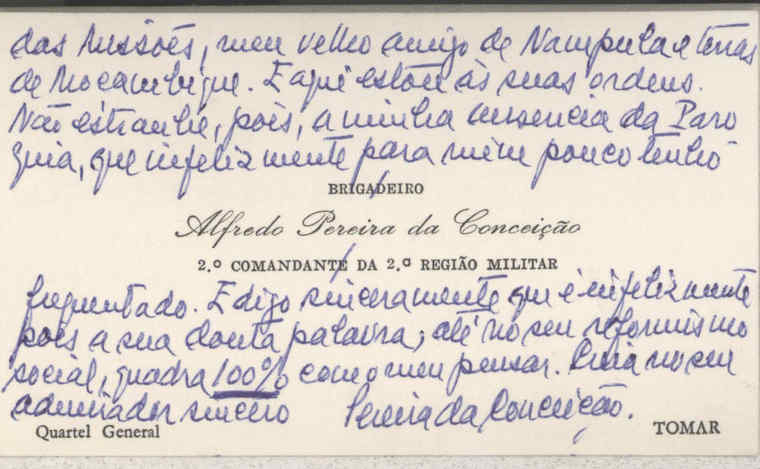 das Missões, meu velho amigo de Nampula e terras
de Moçambique. E aqui estou às suas ordens.
Não estranhe, pois, a minha ausencia da Paro
quia, que infelizmente para mim pouco tenho
BRIGADEIRO
Alfredo Pereira da Conceição
2.º COMANDANTE DA 2.ª REGIÃO MILITAR
frequentado. E digo sinceramente que é infelizmente
pois a sua douta palavra, até no seu reformismo
social, quadra 100% com o meu pensar. Creia no seu
admirador sincero Pereira da Conceição.
Quartel General TOMAR